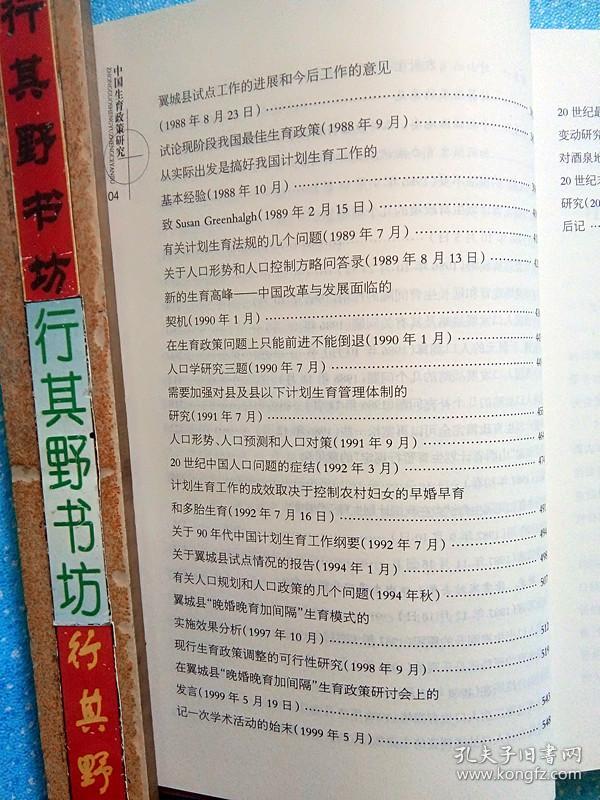 行其野书坊
行其野书坊
行其野
中国生育政策研究
ZHONGGUOSHENGYUZHENGCEYANJIU
04
翼城县试点工作的进展和今后工作的意见
(1988年8月23日)
试论现阶段我国最佳生育政策(1988年9月)
从实际出发是搞好我国计划生育工作的
基本经验(1988年10月)
致Susan Greenhalgh(1989年2月15日)
有关计划生育法规的几个问题(1989年7月)
关于人口形势和人口控制方略问答录(1989年8月13日)
新的生育高峰——中国改革与发展面临的
契机(1990年1月)
在生育政策问题上只能前进不能倒退(1990年1月)
人口学研究三题(1990年7月)
需要加强对县及县以下计划生育管理体制的
研究(1991年7月)
人口形势、人口预测和人口对策(1991年9月)
20世纪中国人口问题的症结(1992年3月)
计划生育工作的成效取决于控制农村妇女的早婚早育
和多胎生育(1992年7月16日)
关于90年代中国计划生育工作纲要(1992年7月)
关于翼城县试点情况的报告(1994年1月) 498
有关人口规划和人口政策的几个问题(1994年秋) 507
翼城县“晚婚晚育加间隔”生育模式的
实施效果分析(1997年10月) 512
现行生育政策调整的可行性研究(1998年9月) 519
在翼城县“晚婚晚育加间隔”生育政策研讨会上的
发言(1999年5月19日) 543
记一次学术活动的始末(1999年5月) 548
20世纪最
变动研究
对酒泉地
20世纪末
研究(20
后记
孔夫子旧书网
www.kongfz.com